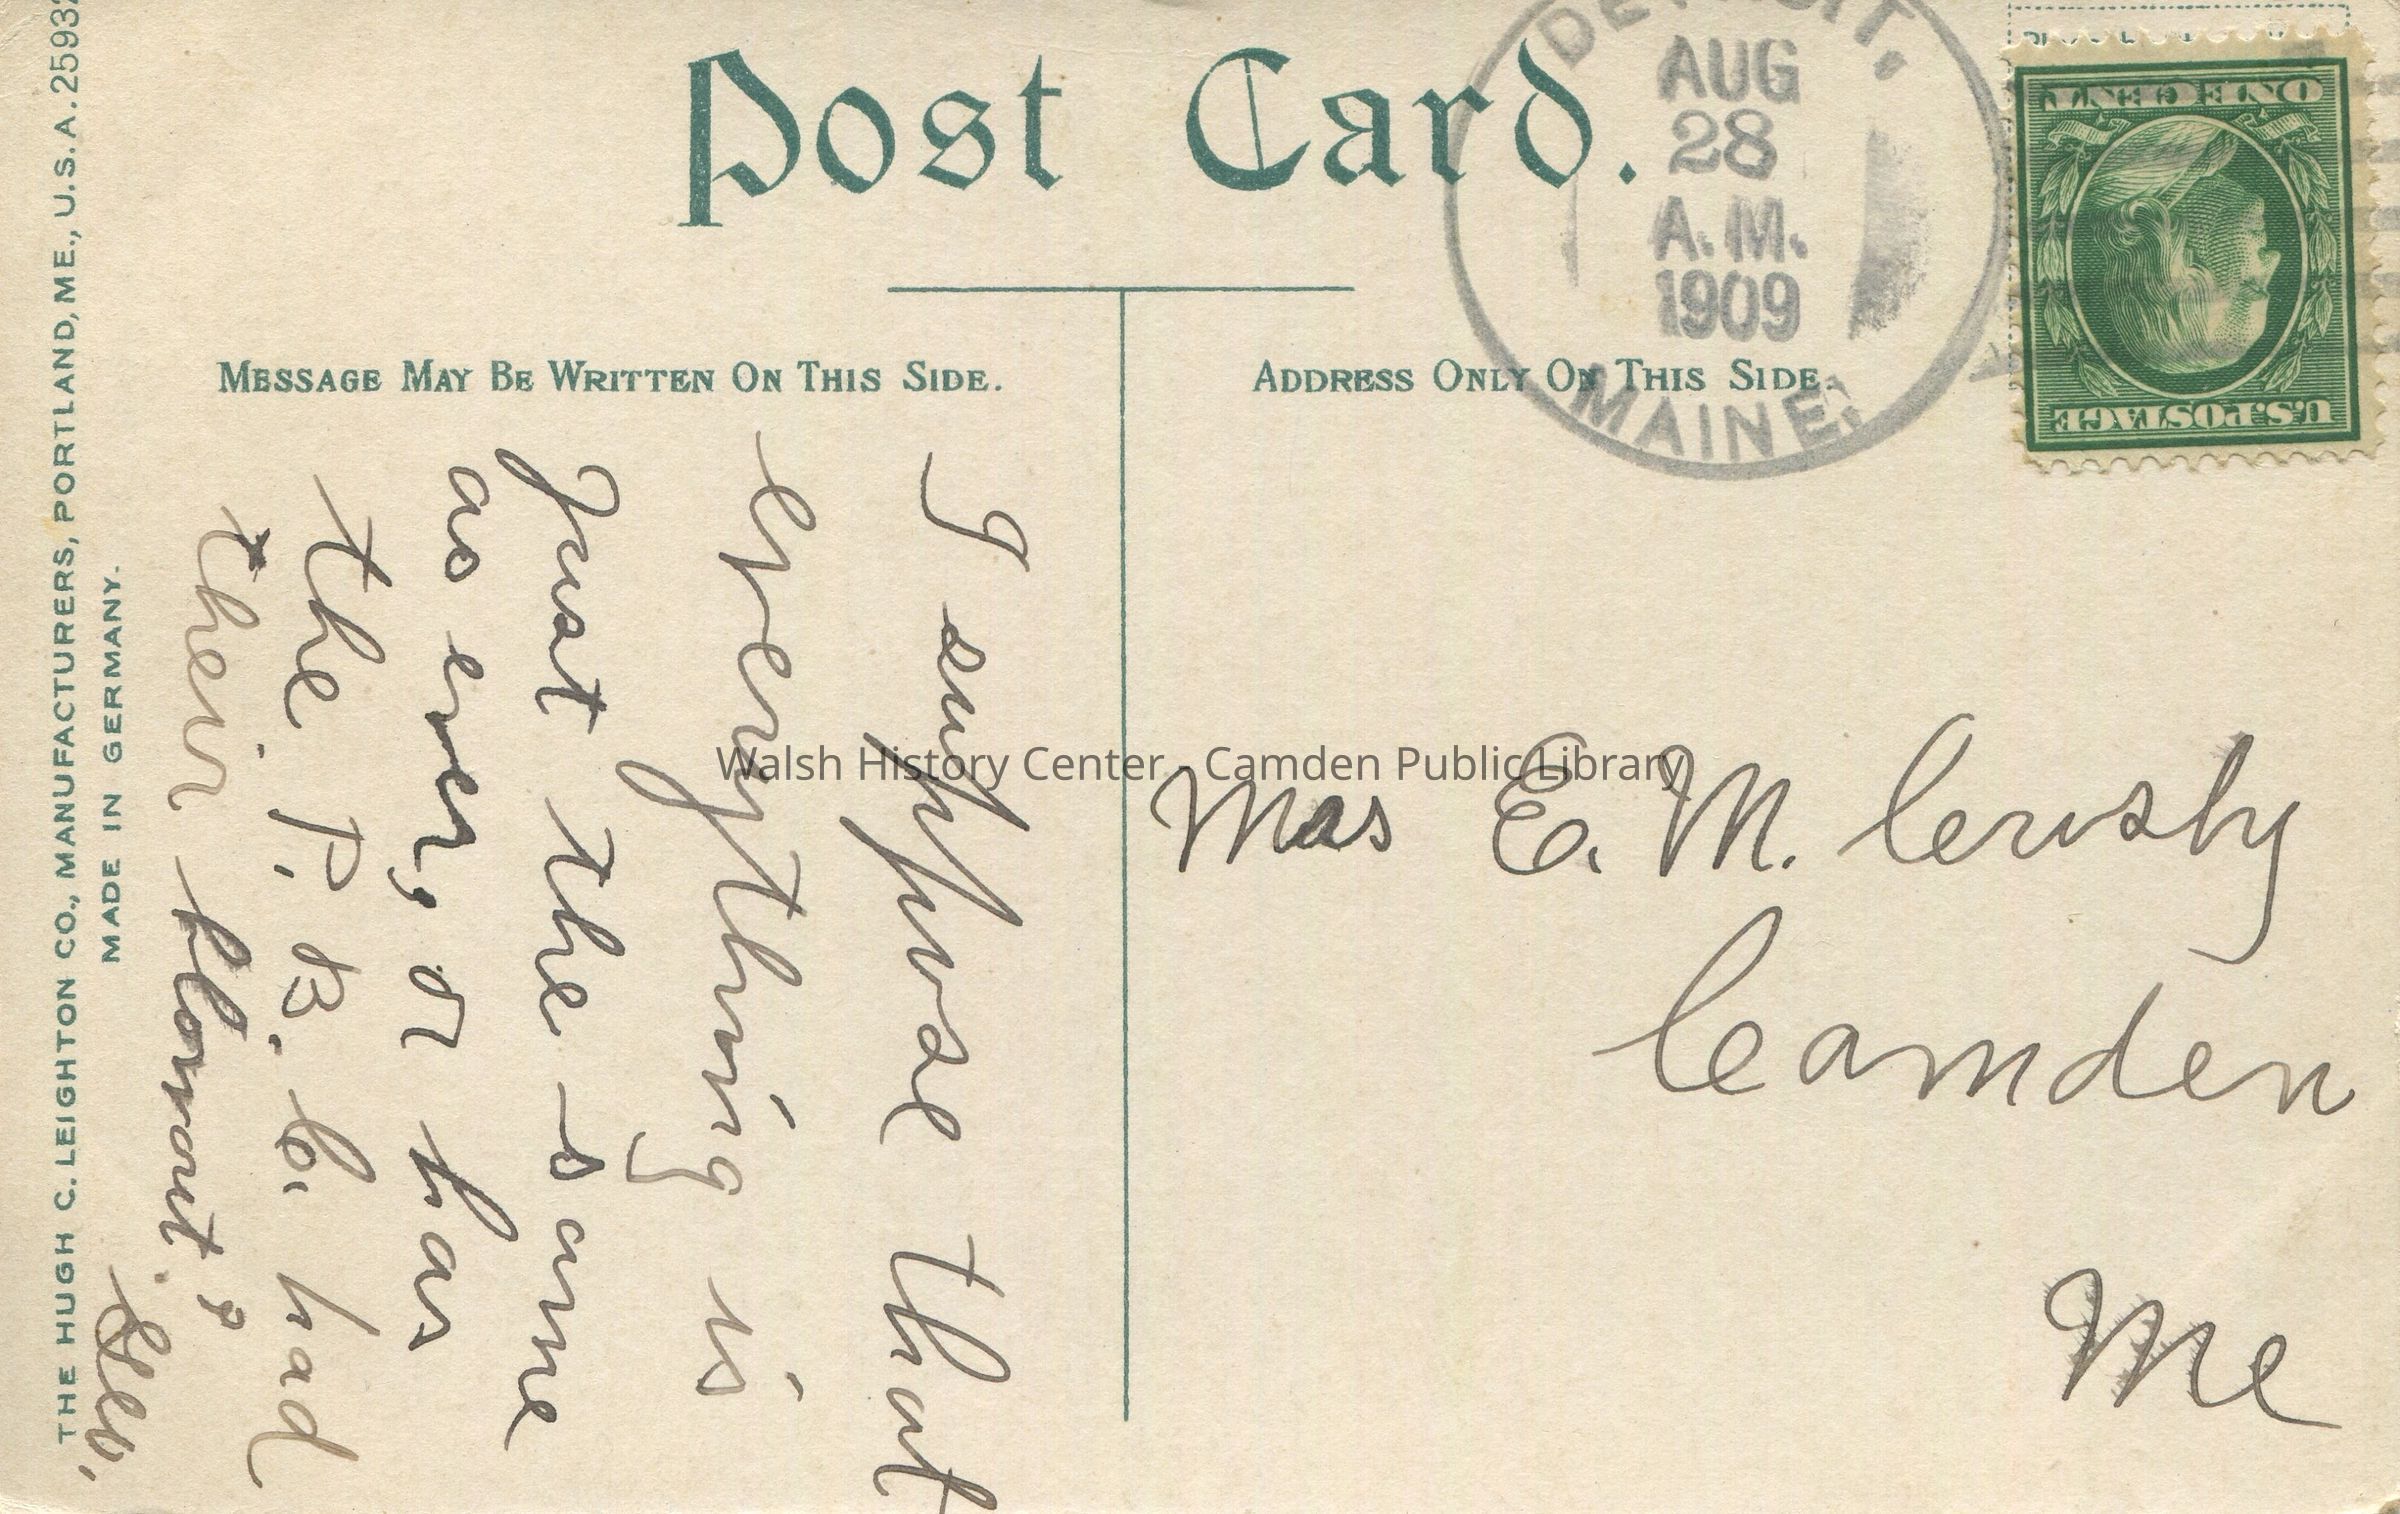 THE HUGH C. LEIGHTON CO., MANUFACTURERS, PORTLAND, ME., U.S.A. 25932
MADE IN GERMANY.
Post Card.
DETROIT,
AUG
28
A.M.
1909
MAINE
ONE CENT
U.S. POSTAGE
MESSAGE MAY BE WRITTEN ON THIS SIDE.
ADDRESS ONLY ON THIS SIDE.
I suppose that
everything is
just the same
as ever, or has
the P. B. C. had
their
E. M.
Camden
Me
Walsh History Center - Camden Public Library